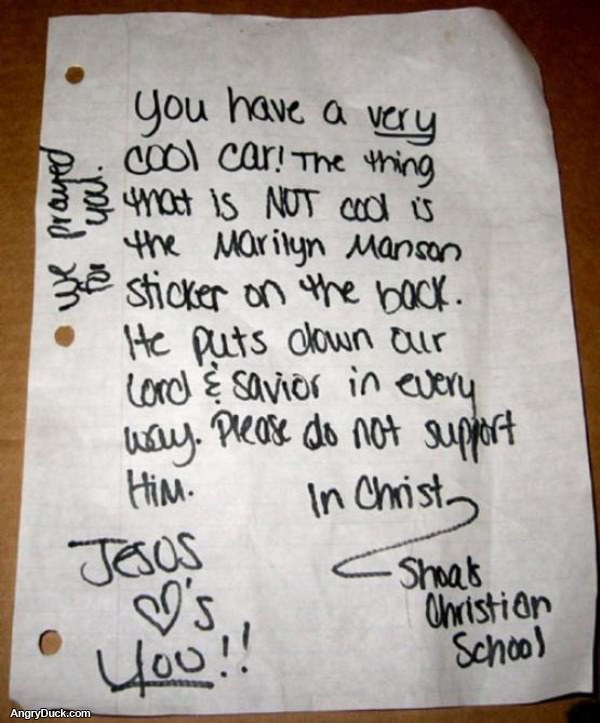 You have a very
cool car! The thing
that is NOT cool is
the Marilyn Manson
sticker on the back.
He puts down our
Lord & Savior in every
way. Please do not support
Him.
In Christ,
Shoals
Christian
School
Jesus
♡'s
You!!
We prayed
for you.
AngryDuck.com